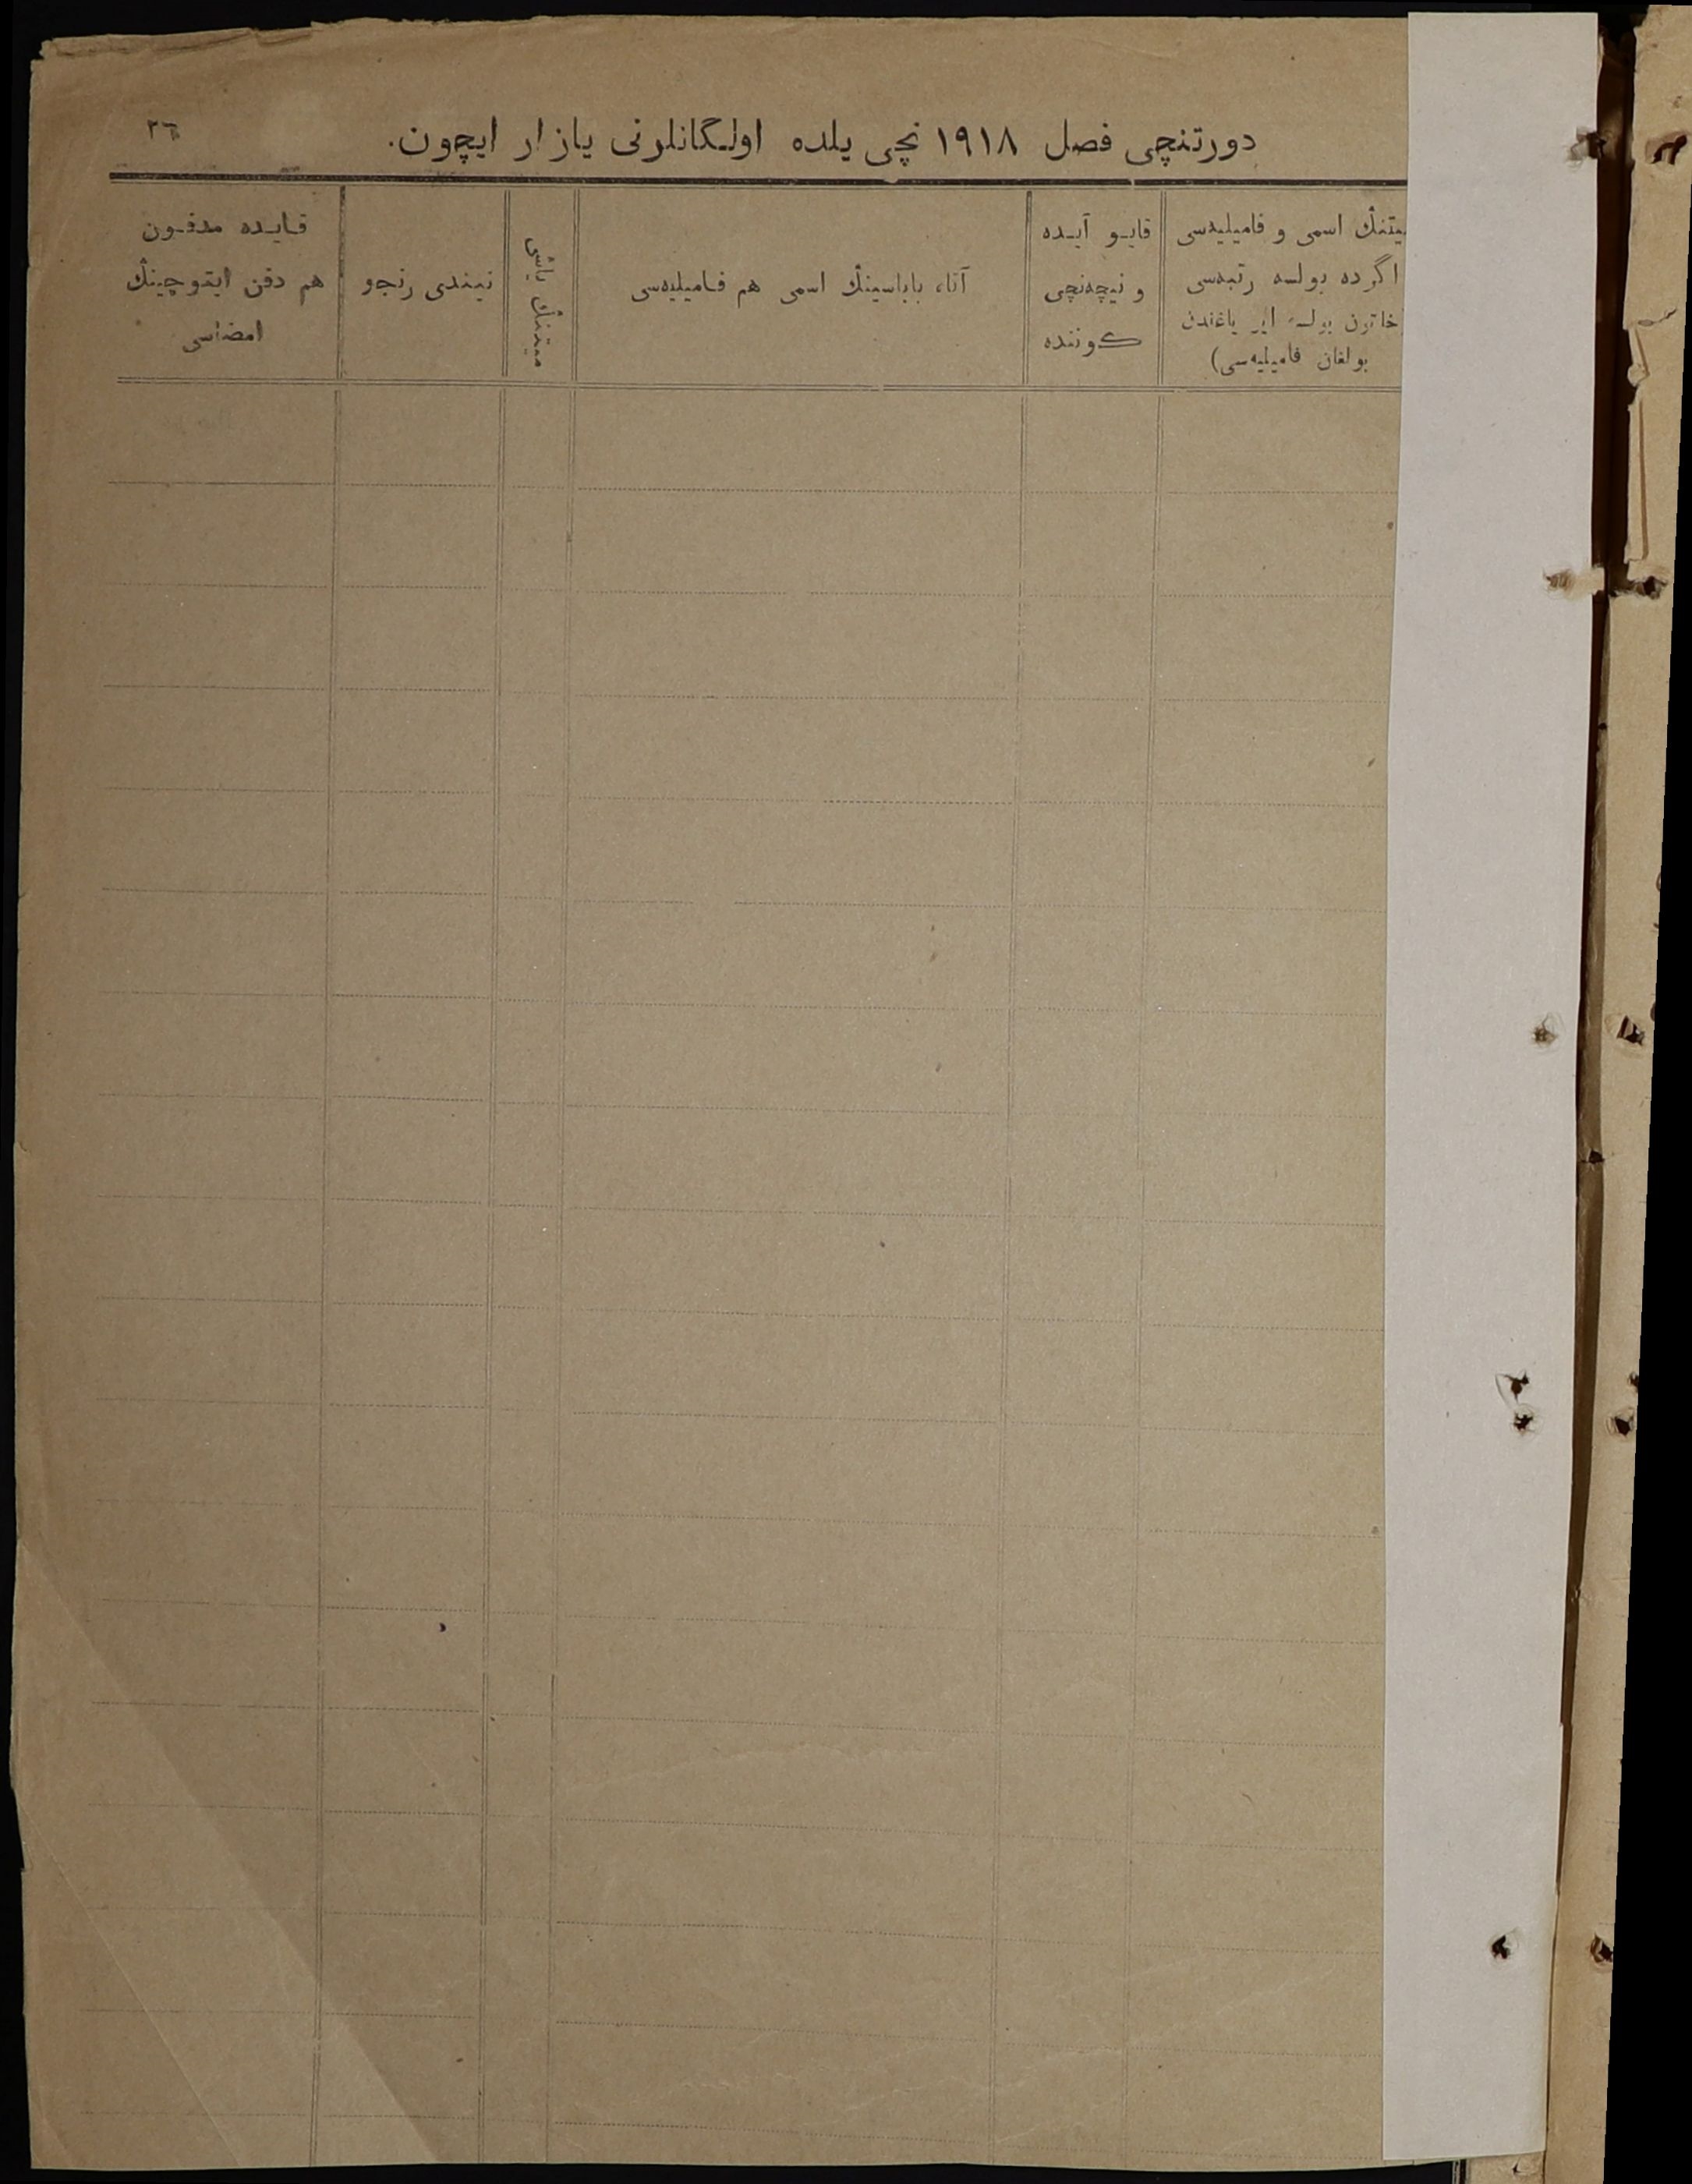 ٢٦
دورتنچی فصل ١٩١٨ نچی یلده اولـگانلرنی یازار ایچون.
میتنڭ اسمی و فامیلیه‌سی
اگرده بولسه رتبه‌سی
(خاتون بولسه ایر یاغندن
بولغان فامیلیه‌سی)
قایـو آیـده
و نیچه‌نچی
کوننده
آتا، باباسینڭ اسمی هم فـامیلیه‌سی
میتنڭ یاشی
نیندی رنجو
قـایـده مدفـون
هم دفن ایتوچینڭ
امضاسی